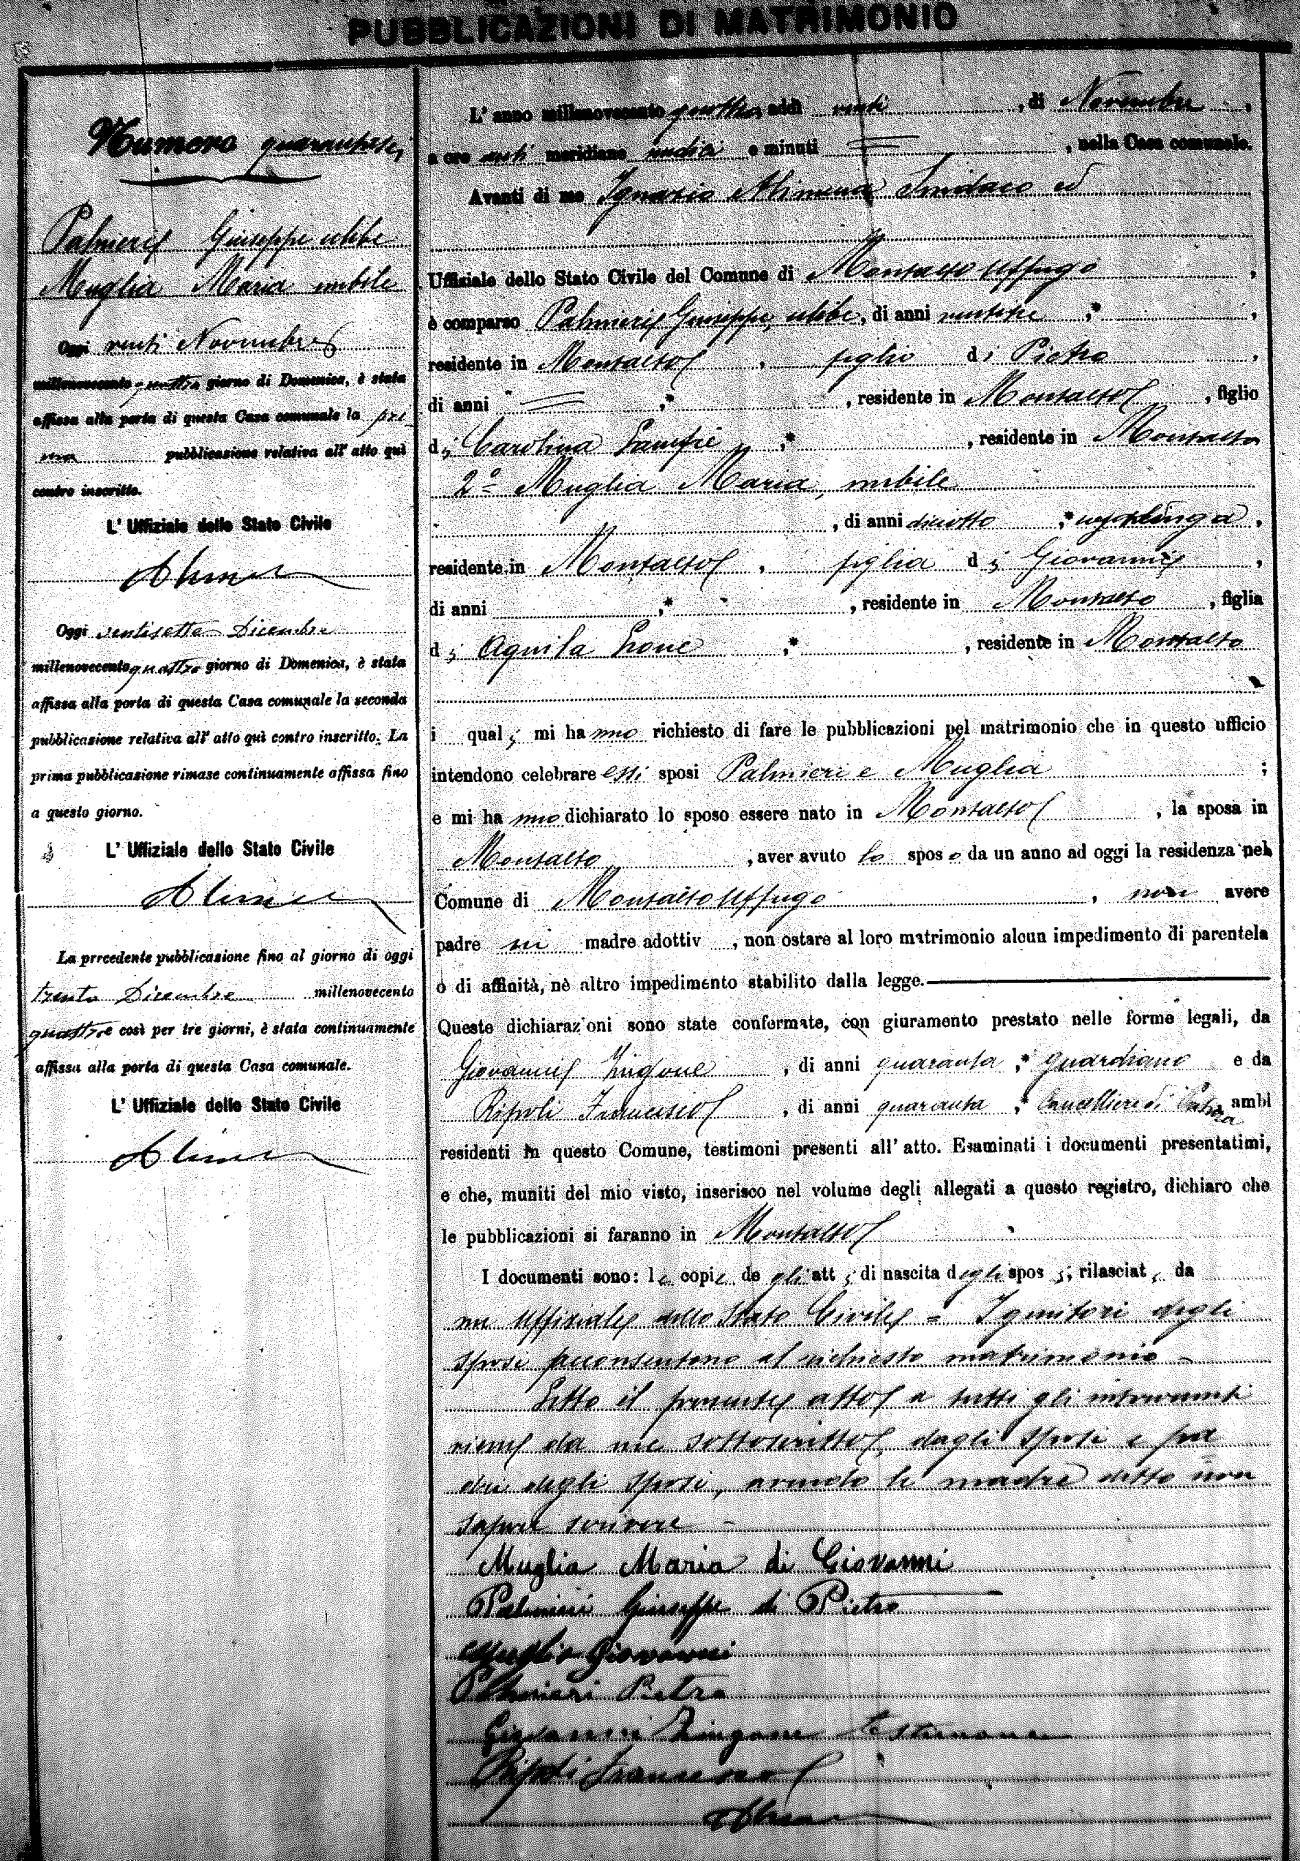 PUBBLICAZIONI DI MATRIMONIO
Numero quarantasei
Palmieri Giuseppe celibe
Muglia Maria nubile
Oggi venti Novembre
millenovecento quattro giorno di Domenica, è stata
affissa alla porta di questa Casa comunale la pri-
ma pubblicazione relativa all' atto quì
contro inscritto.
L' Uffiziale dello Stato Civile
Alimena
Oggi ventisette Dicembre
millenovecento quattro giorno di Domenica, è stata
affissa alla porta di questa Casa comunale la seconda
pubblicazione relativa all' atto quì contro inscritto. La
prima pubblicazione rimase continuamente affissa fino
a questo giorno.
L' Uffiziale dello Stato Civile
Alimena
La prrcedente pubblicazione fino al giorno di oggi
trenta Dicembre millenovecento
quattro e così per tre giorni, è stata continuamente
affissa alla porta di questa Casa comunale.
L' Uffiziale dello Stato Civile
Alimena
L' anno millenovecento quattro, addì venti, di Novembre,
a ore venti meridiane e minuti =, nella Casa comunale.
Avanti di me Ignazio Alimena Sindaco ed
Uffiziale dello Stato Civile del Comune di Montalto Uffugo,
è comparso Palmieri Giuseppe, celibe, di anni ventitre,*
residente in Montalto, figlio di Pietro,
di anni =,* , residente in Montalto, figlio
di Carolina ,* , residente in Montalto
2º Muglia Maria, nubile
, di anni diciotto,* casalinga,
residente in Montalto, figlia di Giovanni,
di anni ,* , residente in Montalto, figlia
di Aquila ,* , residente in Montalto
i quali mi hanno richiesto di fare le pubblicazioni pel matrimonio che in questo ufficio
intendono celebrare essi sposi Palmieri e Muglia ;
e mi hanno dichiarato lo sposo essere nato in Montalto, la sposa in
Montalto, aver avuto lo sposo da un anno ad oggi la residenza nel
Comune di Montalto Uffugo, non avere
padre nè madre adottiv , non ostare al loro matrimonio alcun impedimento di parentela
o di affinità, nè altro impedimento stabilito dalla legge.
Queste dichiarazioni sono state confermate, con giuramento prestato nelle forme legali, da
Giovanni Zingone, di anni quaranta,* guardiano e da
Ripoli Francesco, di anni quaranta, Cancelliere di Pretura, ambi
residenti in questo Comune, testimoni presenti all' atto. Esaminati i documenti presentatimi,
e che, muniti del mio visto, inserisco nel volume degli allegati a questo registro, dichiaro che
le pubblicazioni si faranno in Montalto
I documenti sono: le copie degli atti di nascita degli sposi; rilasciate da
me Uffiziale dello Stato Civile = I genitori degli
sposi acconsentono al richiesto matrimonio -
Letto il presente atto a tutti gli intervenuti
viene da me sottoscritto, dagli sposi e pa
dri degli sposi, avendo le madri detto non
sapere scrivere -
Muglia Maria di Giovanni
Palmieri Giuseppe di Pietro
Muglia Giovanni
Palmieri Pietro
Giovanni Zingone testimone
Ripoli Francesco
Alimena